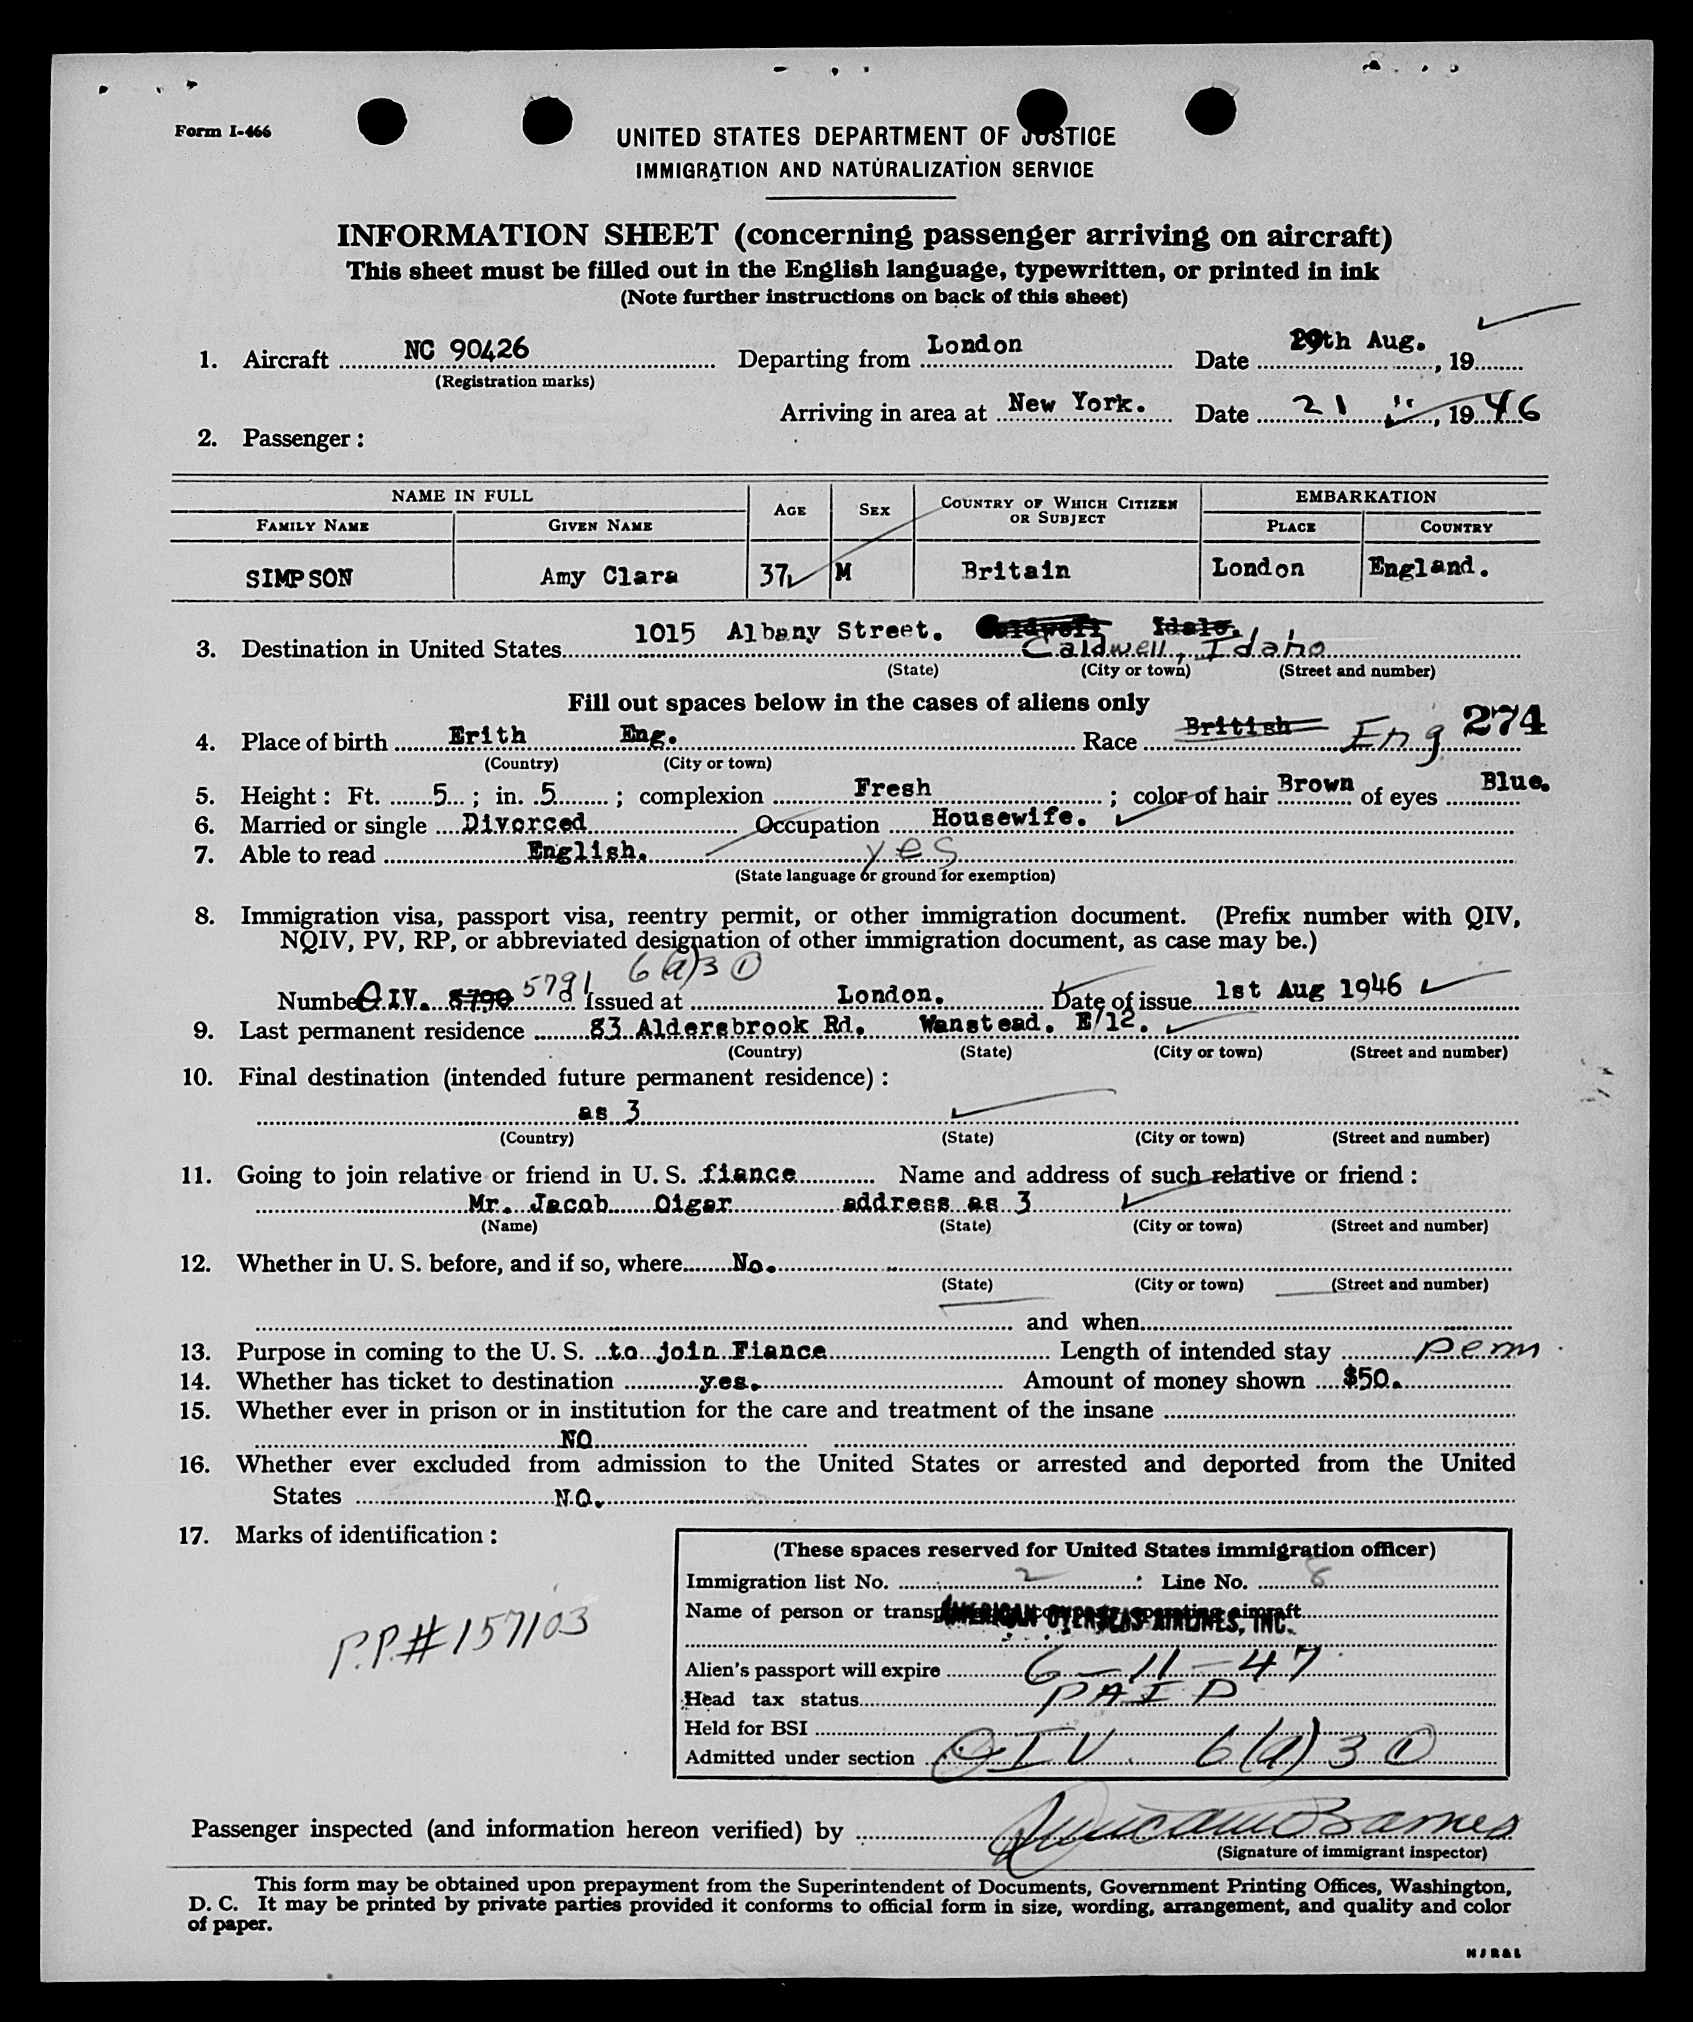 Form I-466
UNITED STATES DEPARTMENT OF JUSTICE
IMMIGRATION AND NATURALIZATION SERVICE
INFORMATION SHEET (concerning passenger arriving on aircraft)
This sheet must be filled out in the English language, typewritten, or printed in ink
(Note further instructions on back of this sheet)
1. Aircraft NC 90426 Departing from London Date th Aug. , 19
(Registration marks)
Arriving in area at New York. Date 21 " , 1946
2. Passenger:
NAME IN FULL AGE SEX COUNTRY OF WHICH CITIZEN OR SUBJECT EMBARKATION
FAMILY NAME GIVEN NAME PLACE COUNTRY
SIMPSON Amy Clara 37 M Britain London England.
3. Destination in United States 1015 Albany Street. Caldwell Idaho. Caldwell, Idaho
(State) (City or town) (Street and number)
Fill out spaces below in the cases of aliens only
4. Place of birth Erith Eng. Race British Eng 274
(Country) (City or town)
5. Height: Ft. 5 ; in. 5 ; complexion Fresh ; color of hair Brown of eyes Blue.
6. Married or single Divorced Occupation Housewife.
7. Able to read English. yes
(State language or ground for exemption)
8. Immigration visa, passport visa, reentry permit, or other immigration document. (Prefix number with QIV,
NQIV, PV, RP, or abbreviated designation of other immigration document, as case may be.)
6(a)3 ①
Number Q.IV. 5790 5791 Issued at London. Date of issue 1st Aug 1946
9. Last permanent residence 83 Aldersbrook Rd. Wanstead. E/12.
(Country) (State) (City or town) (Street and number)
10. Final destination (intended future permanent residence):
as 3
(Country) (State) (City or town) (Street and number)
11. Going to join relative or friend in U. S. fiance Name and address of such relative or friend:
Mr. Jacob Oigar address as 3
(Name) (State) (City or town) (Street and number)
12. Whether in U. S. before, and if so, where No.
(State) (City or town) (Street and number)
and when
13. Purpose in coming to the U. S. to join Fiance Length of intended stay perm
14. Whether has ticket to destination yes. Amount of money shown $50.
15. Whether ever in prison or in institution for the care and treatment of the insane
NO
16. Whether ever excluded from admission to the United States or arrested and deported from the United
States N.O.
17. Marks of identification:
P.P.# 157103
(These spaces reserved for United States immigration officer)
Immigration list No. 2 : Line No. 8
Name of person or transportation company operating aircraft
AMERICAN OVERSEAS AIRLINES, INC.
Alien's passport will expire 6-11-47
Head tax status PAID
Held for BSI
Admitted under section QIV. 6(a)3 ①
Passenger inspected (and information hereon verified) by Duncan Barnes
(Signature of immigrant inspector)
This form may be obtained upon prepayment from the Superintendent of Documents, Government Printing Offices, Washington,
D. C. It may be printed by private parties provided it conforms to official form in size, wording, arrangement, and quality and color
of paper.